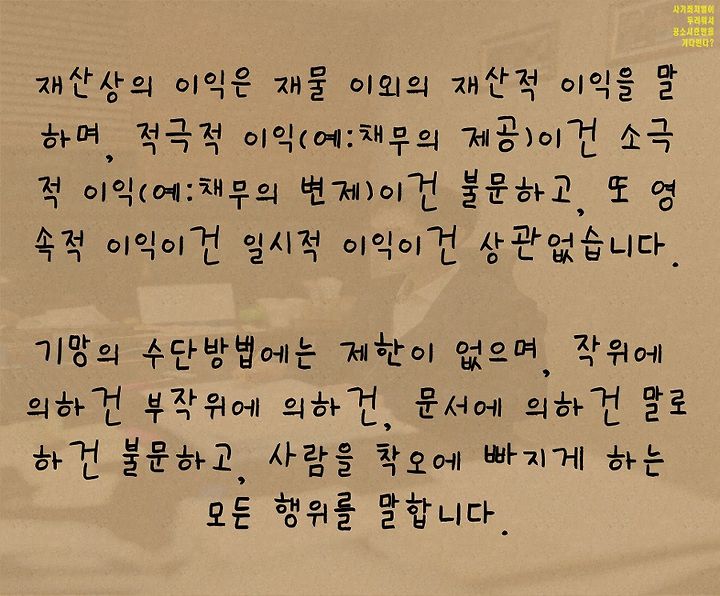 사기죄처벌이
두려워서
공소시효만을
기다린다?
재산상의 이익은 재물 이외의 재산적 이익을 말
하며, 적극적 이익(예:채무의 제공)이건 소극
적 이익(예:채무의 변제)이건 불문하고, 또 영
속적 이익이건 일시적 이익이건 상관없습니다.
기망의 수단방법에는 제한이 없으며, 작위에
의하건 부작위에 의하건, 문서에 의하건 말로
하건 불문하고, 사람을 착오에 빠지게 하는
모든 행위를 말합니다.